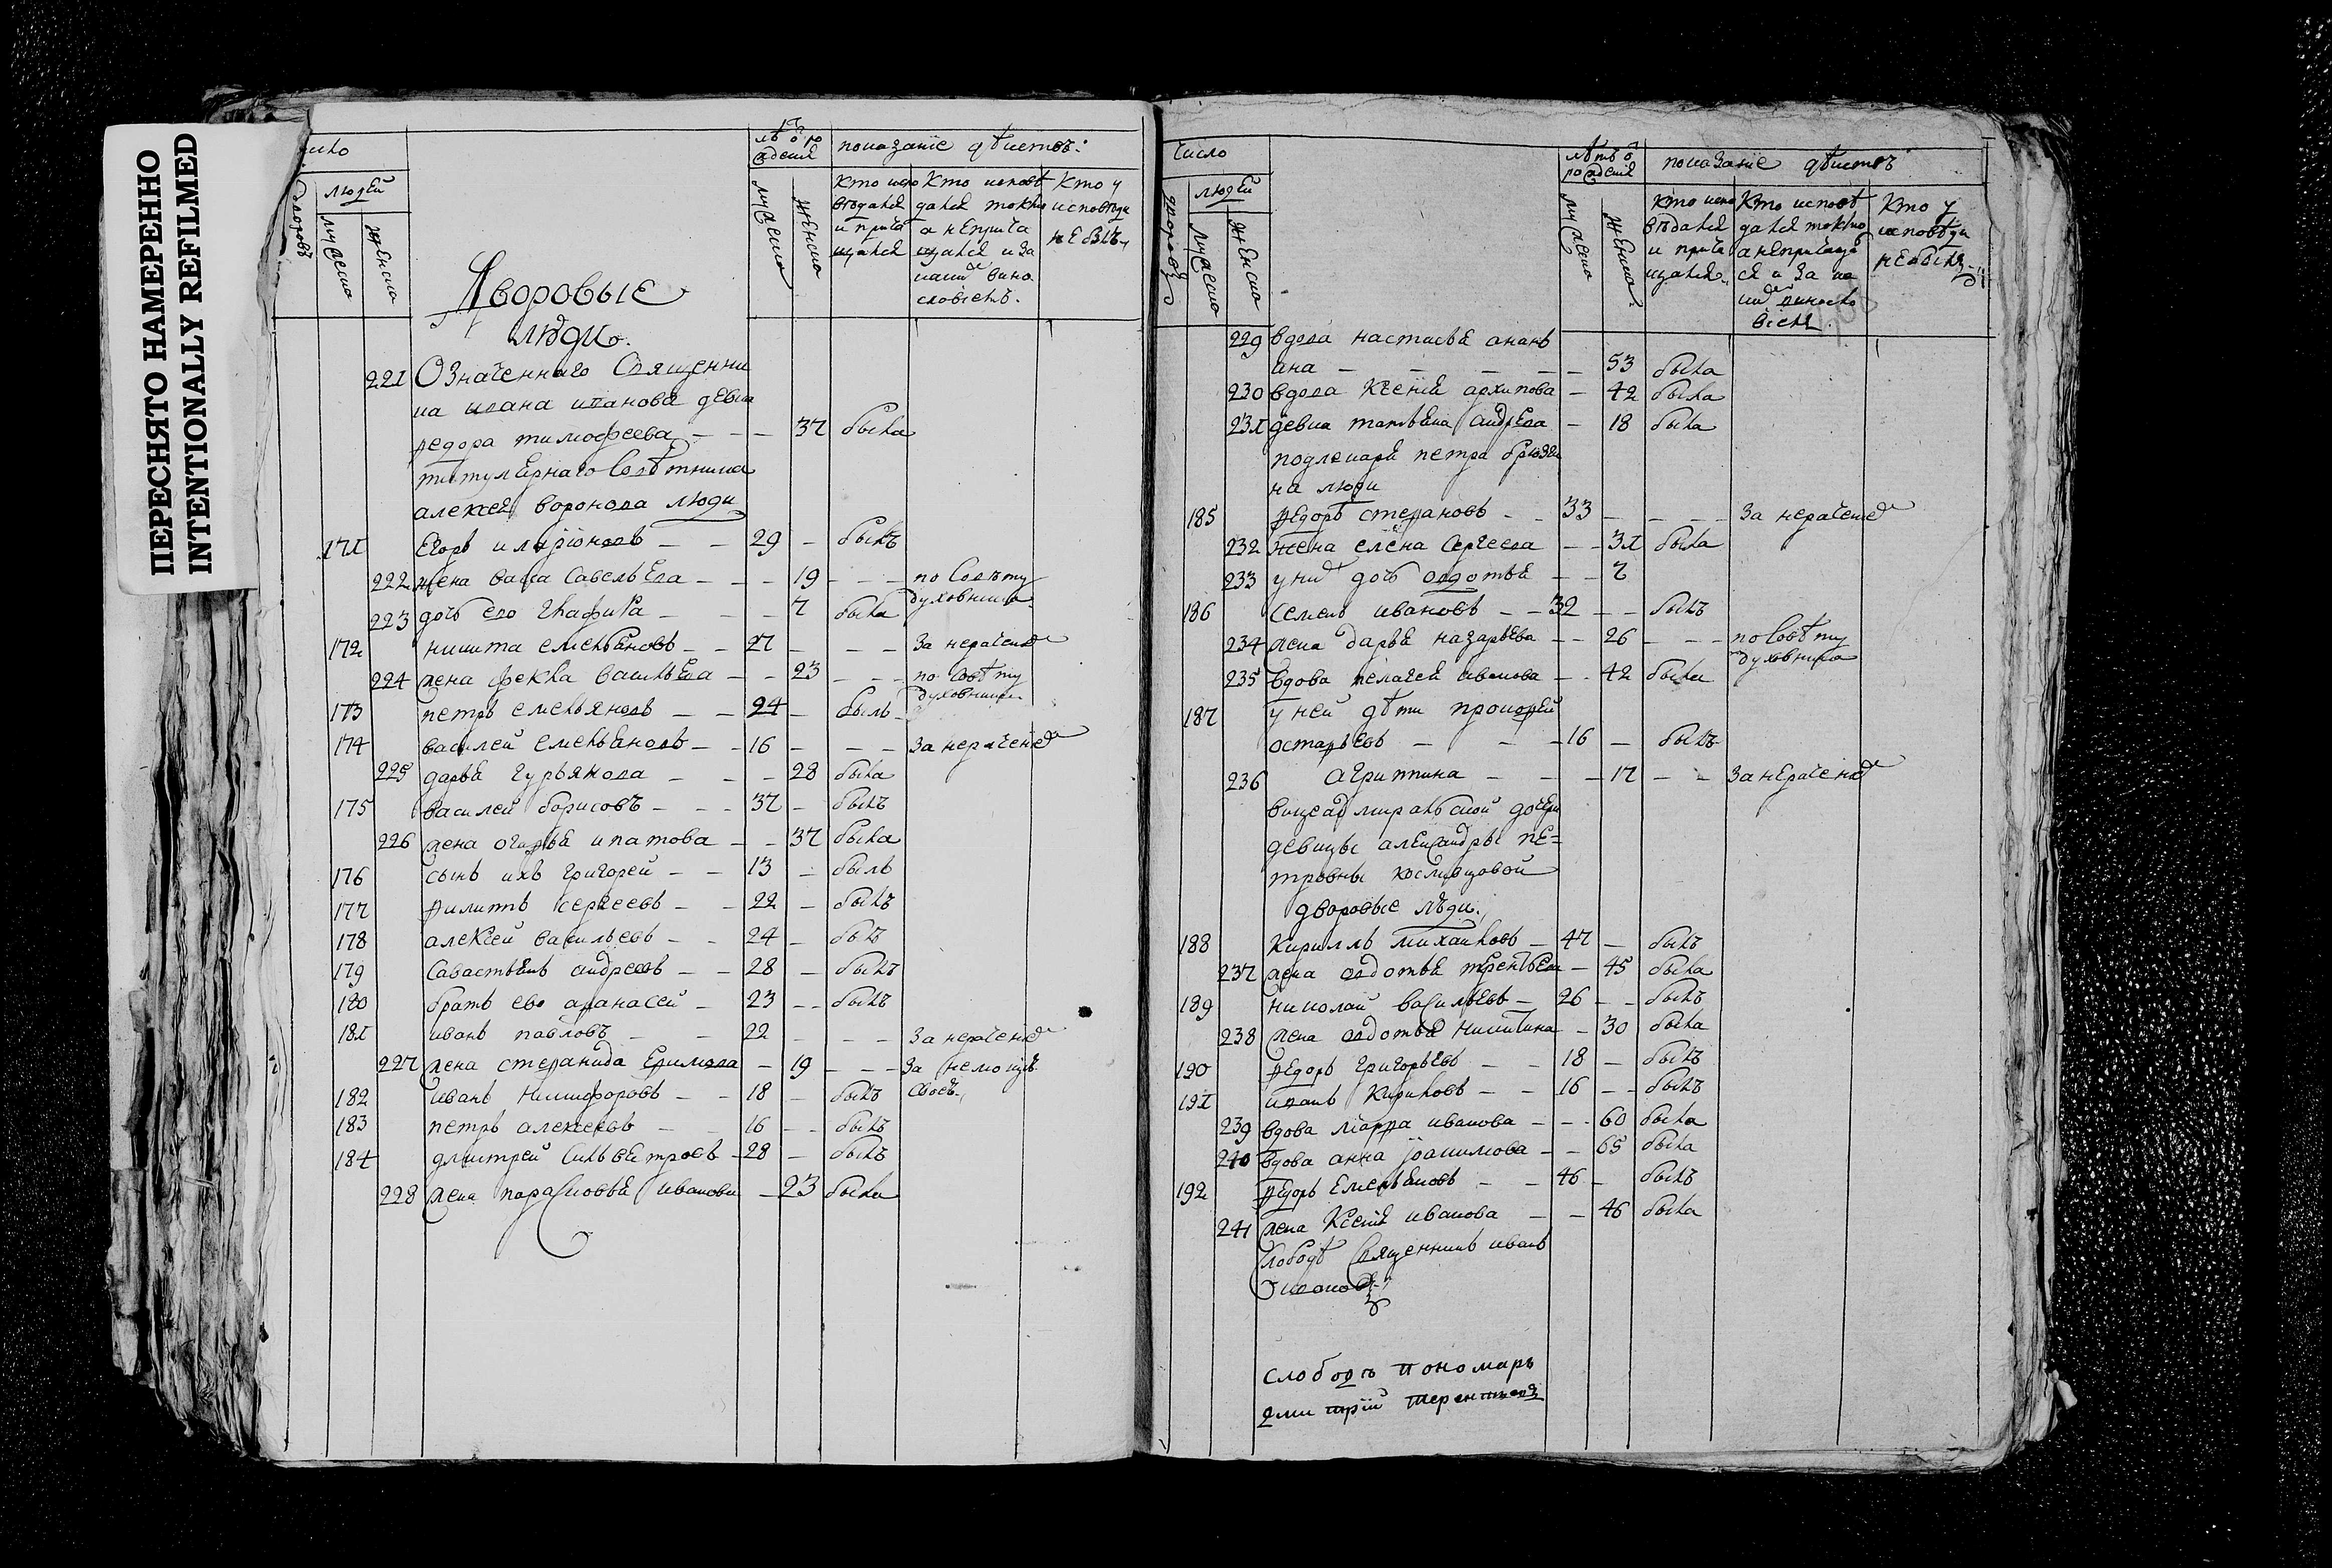 ПЕРЕСНЯТО НАМЕРЕННО
INTENTIONALLY REFILMED
число
людей
дворовъ
мужеска
женска
лѣтъ о ро
ждения
показание дѣйствъ
мужеска
женска
Кто испо
вѣдался
и прича
щался
Кто исповѣ
дался токмо
а неприча
щался и за
каким вино
словіемъ.
Кто у
исповѣди
не былъ
Дворовые
люди.
221 Означеннаго Священни
ка ивана иванова девка
федора тимофеева — — — 37 была
титулернаго Совѣтника
алексея воронова люди
171 Егоръ иларионовъ — — 29 — былъ
222 жена васа Савельева — — — 19 — — — по Совѣту
духовника
223 дочь ево Глафира — — — 7 была
172 никита емельяновъ — — 27 — — — За нерачением
224 жена фекла васильева — — 23 — — — по совѣту
духовника
173 петръ емельяновъ — — 24 — былъ
174 василей емельяновъ — — 16 — — — За нерачением
225 дарья гурьянова — — — 28 была
175 василей борисовъ — — — 37 — былъ
226 жена ипатова — — 37 была
176 сынъ ихъ григорей — — 13 — былъ
177 филиппъ сергеевъ — — 22 — былъ
178 алексей васильевъ — — 24 — былъ
179 Савастьянъ андреевъ — — 28 — былъ
180 братъ ево афанасей — 23 — — былъ
181 иванъ павловъ — — 22 — — — За нерачением
227 жена степанида Ефимова — 19 — — — За немощию
своею
182 иванъ Никифоровъ — — 18 — былъ
183 петръ алексеевъ — — 16 — — былъ
184 дмитрей Сильвестровъ — 28 — былъ
228 жена парасковья иванова — 23 была
Число
людей
дворовъ
мужеска
женска
лѣтъ о
рождения
показание дѣйствъ
мужеска
женска
Кто испо
вѣдался
и прича
щался
Кто исповѣ
дался токмо
а непричаща
ся и за ка
ким виносло
віемъ.
Кто у
исповѣди
не былъ
229 вдова настасья анань
ина — — — — — — 53 была
230 вдова Ксения архипова — 42 была
231 девка татьяна андреева — 18 была
подлекаря петра
на люди
185 Федоръ степановъ — — 33 — — — — За нерачением
232 жена елена Сергеева — — 31 была
233 у них дочь авдотья — — 7
186 семенъ ивановъ — — 32 — — былъ
234 жена дарья назарьева — — 26 — — — по Совѣту
духовника
235 вдова пелагея иванова — — 42 была
187 у ней дѣти прокофей
остафьевъ — — — 16 — былъ
236 агрипина — — — 17 — — За нерачением
вицеадмиральской дочери
девицы александры пе=
тровны косливцовой
дворовые люди.
188 Кириллъ михайловъ — 47 — былъ
237 жена авдотья терентьева — 45 была
189 николай васильевъ — 26 — — былъ
238 жена авдотья никитина — 30 была
190 Федоръ григорьевъ — — 18 — былъ
191 иванъ Кириловъ — — 16 — — былъ
239 вдова марфа иванова — — — 60 была
240 вдова анна иоакимова — — 65 была
192 Федоръ Емельяновъ — — 46 — былъ
241 жена Ксения иванова — — 46 была
Слободъ Священникъ иванъ
ивановъ
слободъ пономарь
дмитрій терентьевъ